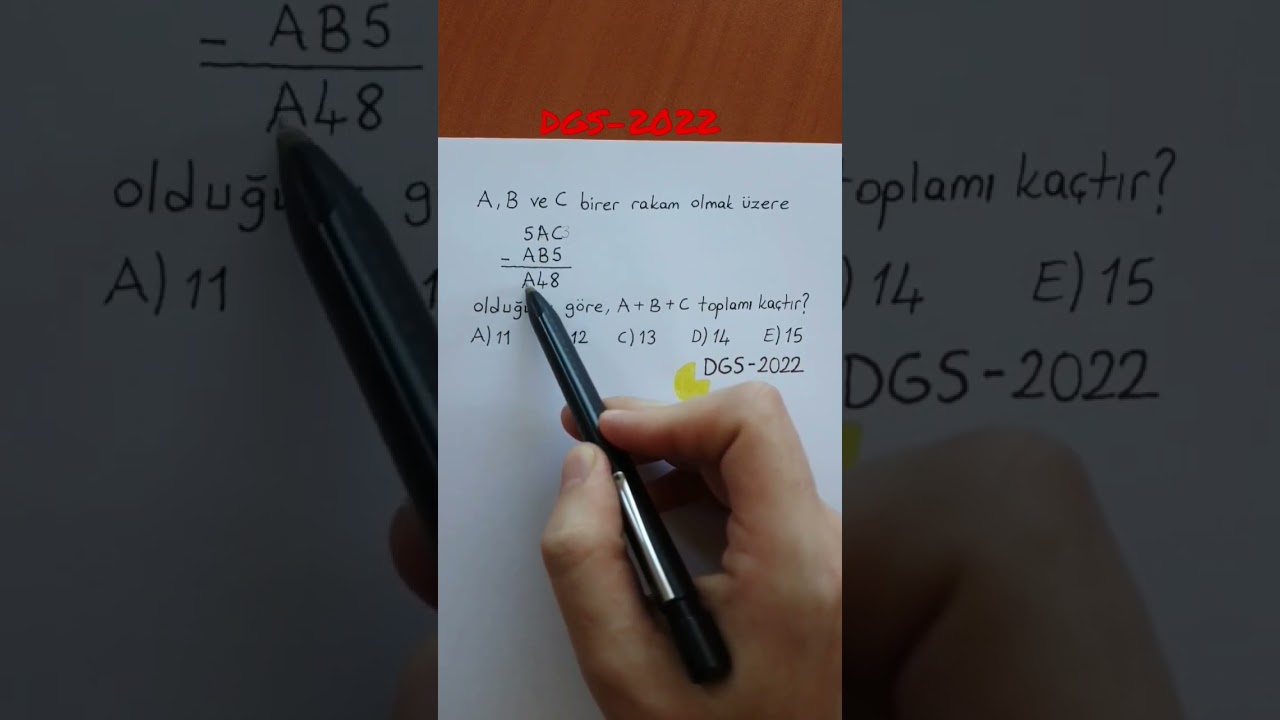 DGS-2022
A, B ve C birer rakam olmak üzere
5AC3
- AB5
A48
olduğu göre, A + B + C toplamı kaçtır?
A) 11 12 C) 13 D) 14 E) 15
DGS-2022